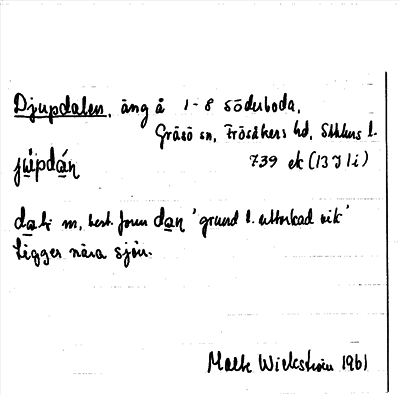 Djupdalen, äng å 1-8 Söderboda,
Gräsö sn, Frösåkers hd, Sthlms l.
739 ek (13 I 1 i)
júpdán
m, best. form dan 'grund l. uttorkad vik'
Ligger nära sjön.
Malte Wickström 1961